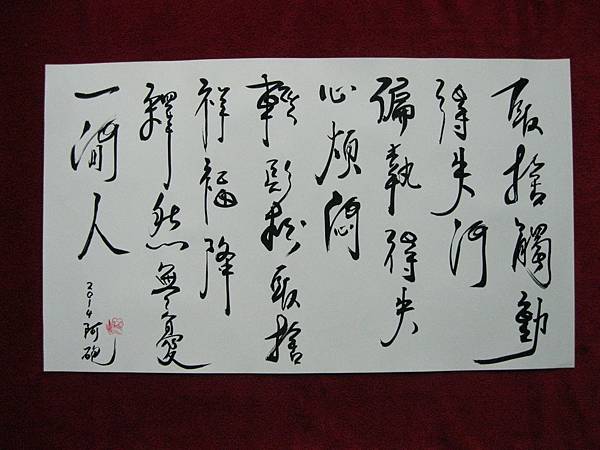 取捨觸動
得失河
偏執得失
心煩悶
輕鬆取捨
祥福降
釋然無憂
一河人
2014 阿